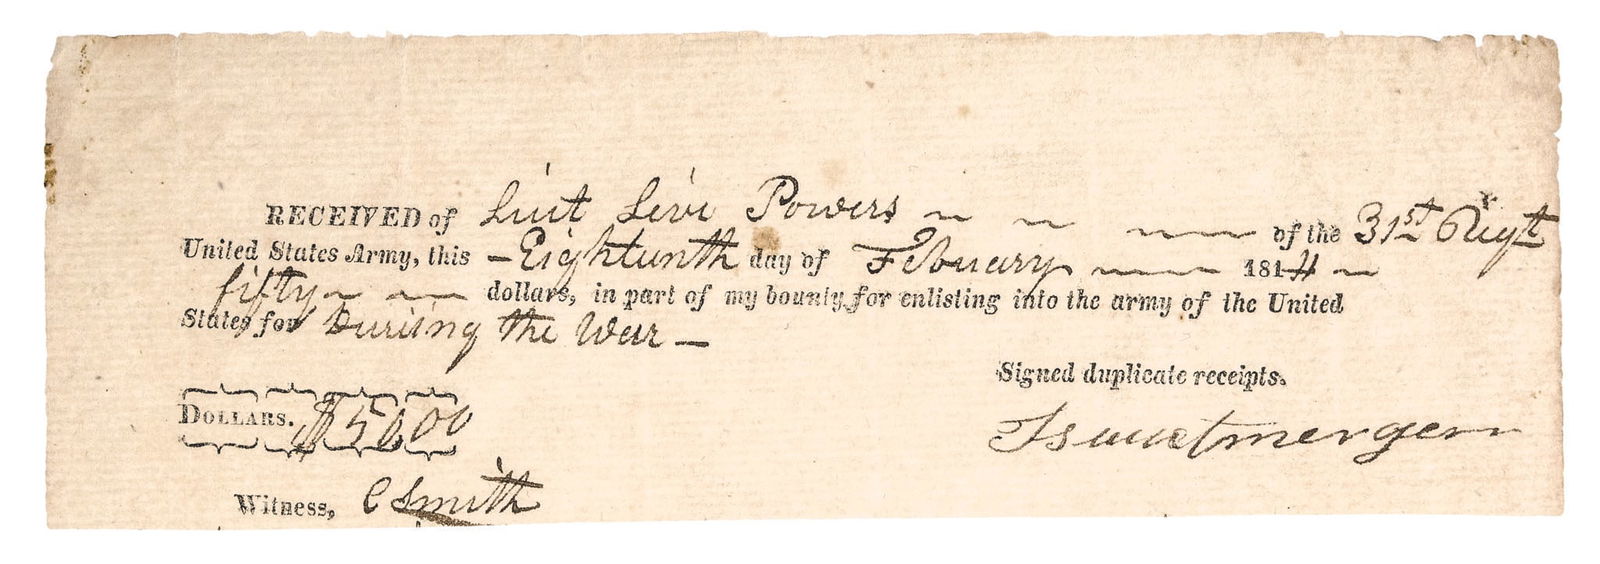 RECEIVED of Liut Levi Powers of the 31st Regt
United States Army, this Eighteenth day of Febuary 1814
fifty dollars, in part of my bounty for enlisting into the army of the United
States for Duriing the War
Signed duplicate receipts.
DOLLARS. $50 00
Witness, C Smith